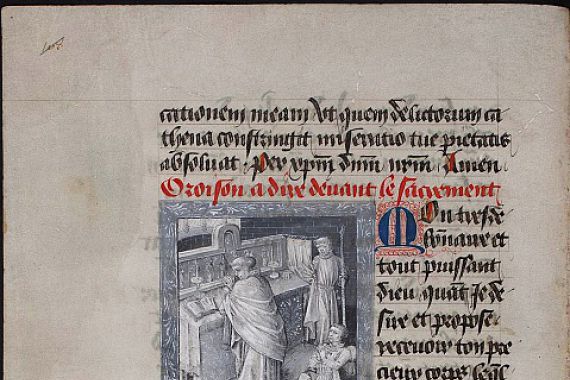 cationem meam Vt quem delictorum ca
thena constringit miseratio tue pietatis
absoluat. Per xpm dnm nrm Amen
Oroison a dire deuant le sacrement
Mon tresde
bōnaire et
tout puissant
dieu quāt Je de
sire et propose
recevoir ton pre
cieux corps